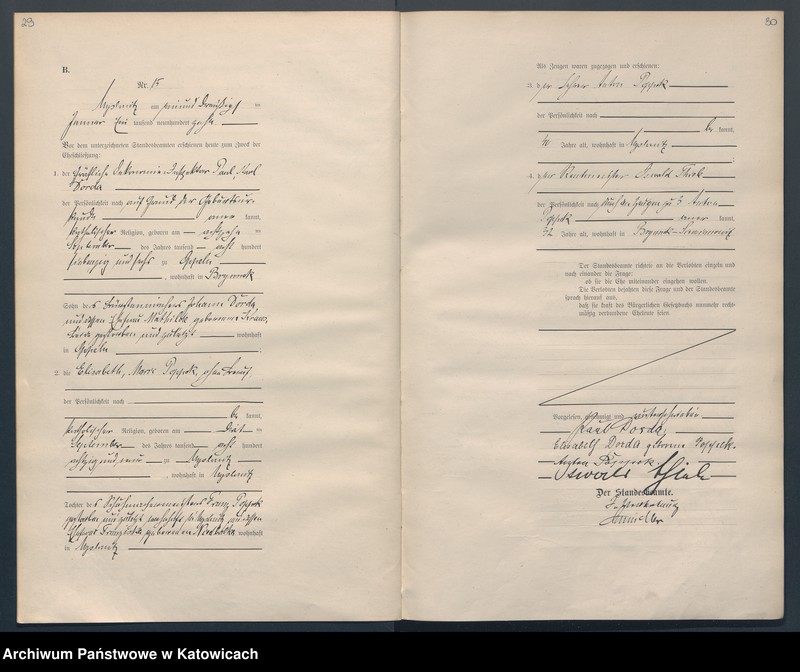 29
B.
Nr. 15
am ein und dreißigsten
Januar ein tausend neunhundert zehn.
Vor dem unterzeichneten Standesbeamten erschienen heute zum Zweck der
Eheschließung:
1. der Gräfliche Oekonomie-Inspektor Paul, Karl
Dorda
der Persönlichkeit nach auf Grund der Geburtsur-
kunde kannt,
katholischer Religion, geboren am achtzehn
September des Jahres tausend acht hundert
siebenzig und sechs zu Oppeln
, wohnhaft in Brynnek
Sohn des Johann Dorda,
und dessen Ehefrau Mathilde geborene
verstorben und zuletzt wohnhaft
in Oppeln ;
2. die Elisabeth, Marie Poppek, ohne Beruf
der Persönlichkeit nach
be kannt,
katholischer Religion, geboren am
September des Jahres tausend acht hundert
achtzig und neun zu
, wohnhaft in
Tochter des Franz Poppek
verstorben und zuletzt wohnhaft in und dessen
Ehefrau Franziska geborenen wohnhaft
in
30
Als Zeugen waren zugezogen und erschienen:
3. der Anton Poppek
der Persönlichkeit nach
be kannt,
Jahre alt, wohnhaft in
;
4. der Rentmeister Oswald Thiele
der Persönlichkeit nach durch den Zeugen zu 3 Anton
Poppek kannt,
32 Jahre alt, wohnhaft in Brynnek
Der Standesbeamte richtete an die Verlobten einzeln und
nach einander die Frage:
ob sie die Ehe miteinander eingehen wollen.
Die Verlobten bejahten diese Frage und der Standesbeamte
sprach hierauf aus,
daß sie kraft des Bürgerlichen Gesetzbuchs nunmehr recht-
mäßig verbundene Eheleute seien.
Vorgelesen, genehmigt und unterschrieben
Paul Dorda
Elisabeth Dorda geborene Poppek.
Anton Poppek
Oswald Thiele
Der Standesbeamte.
In Vertretung
Archiwum Państwowe w Katowicach